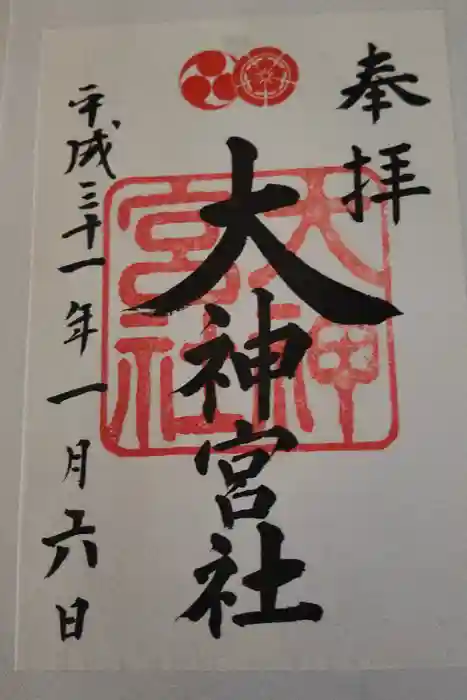 奉拝
大神宮社
平成三十一年一月六日
大神
宮社